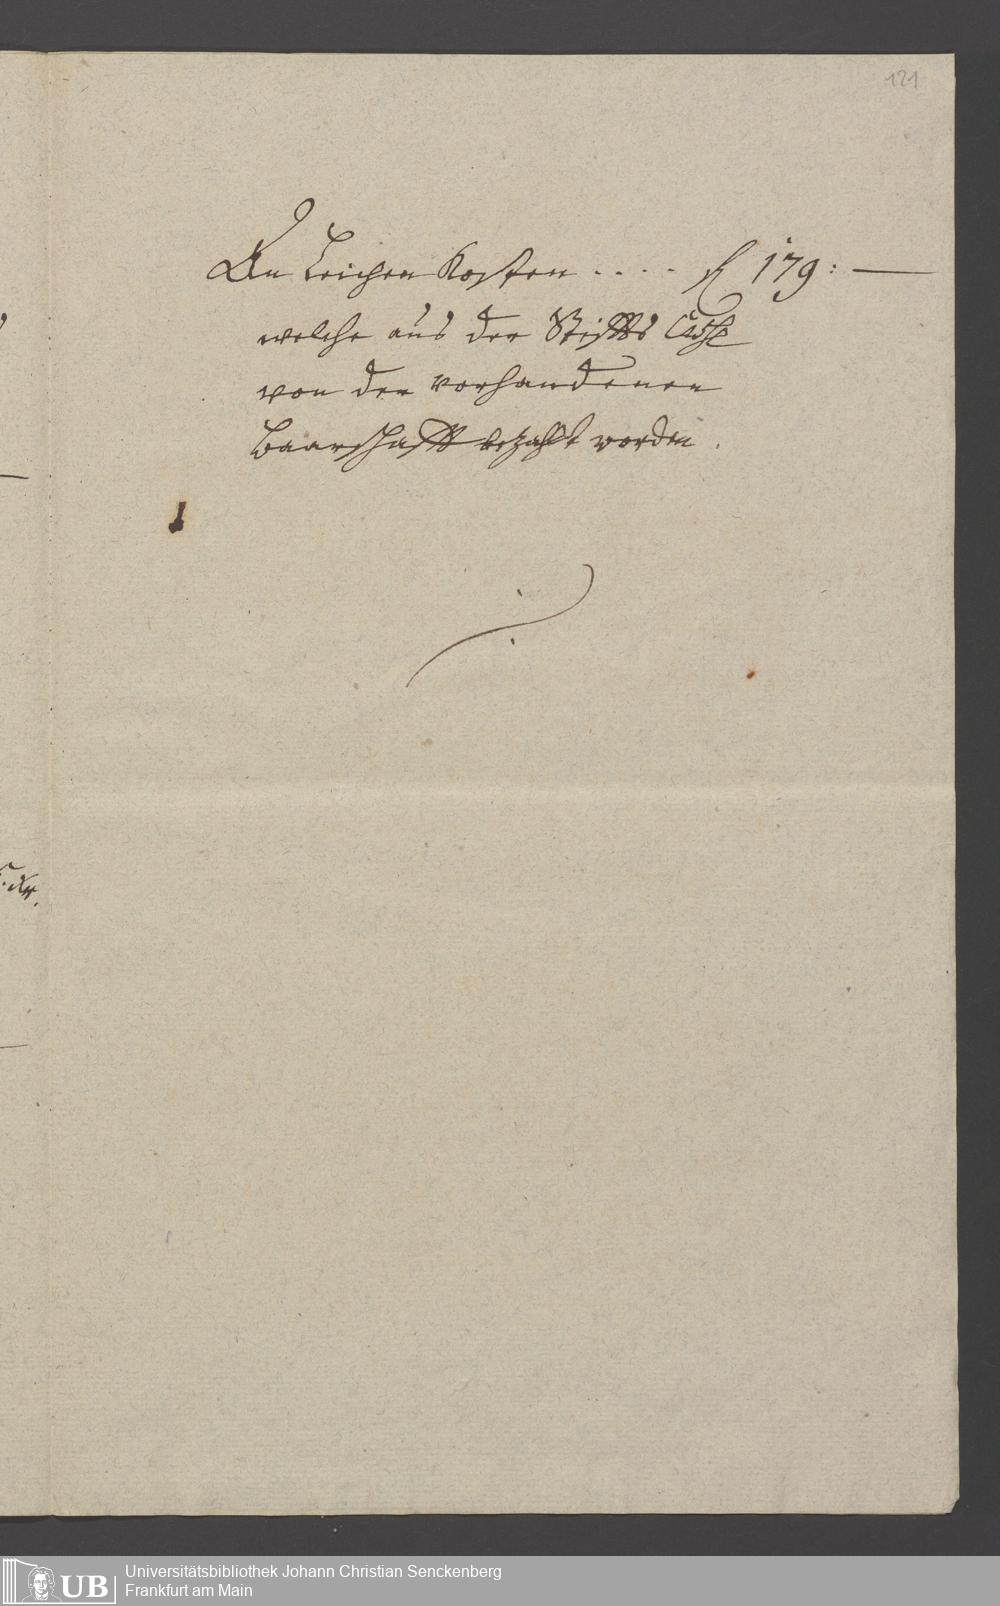 121
An Leichen Kosten . . . . fl 179: —
welche aus der Stiffts Casse
von der vorhandenen
Baarschafft bezahlt worden.
UB Universitätsbibliothek Johann Christian Senckenberg
Frankfurt am Main